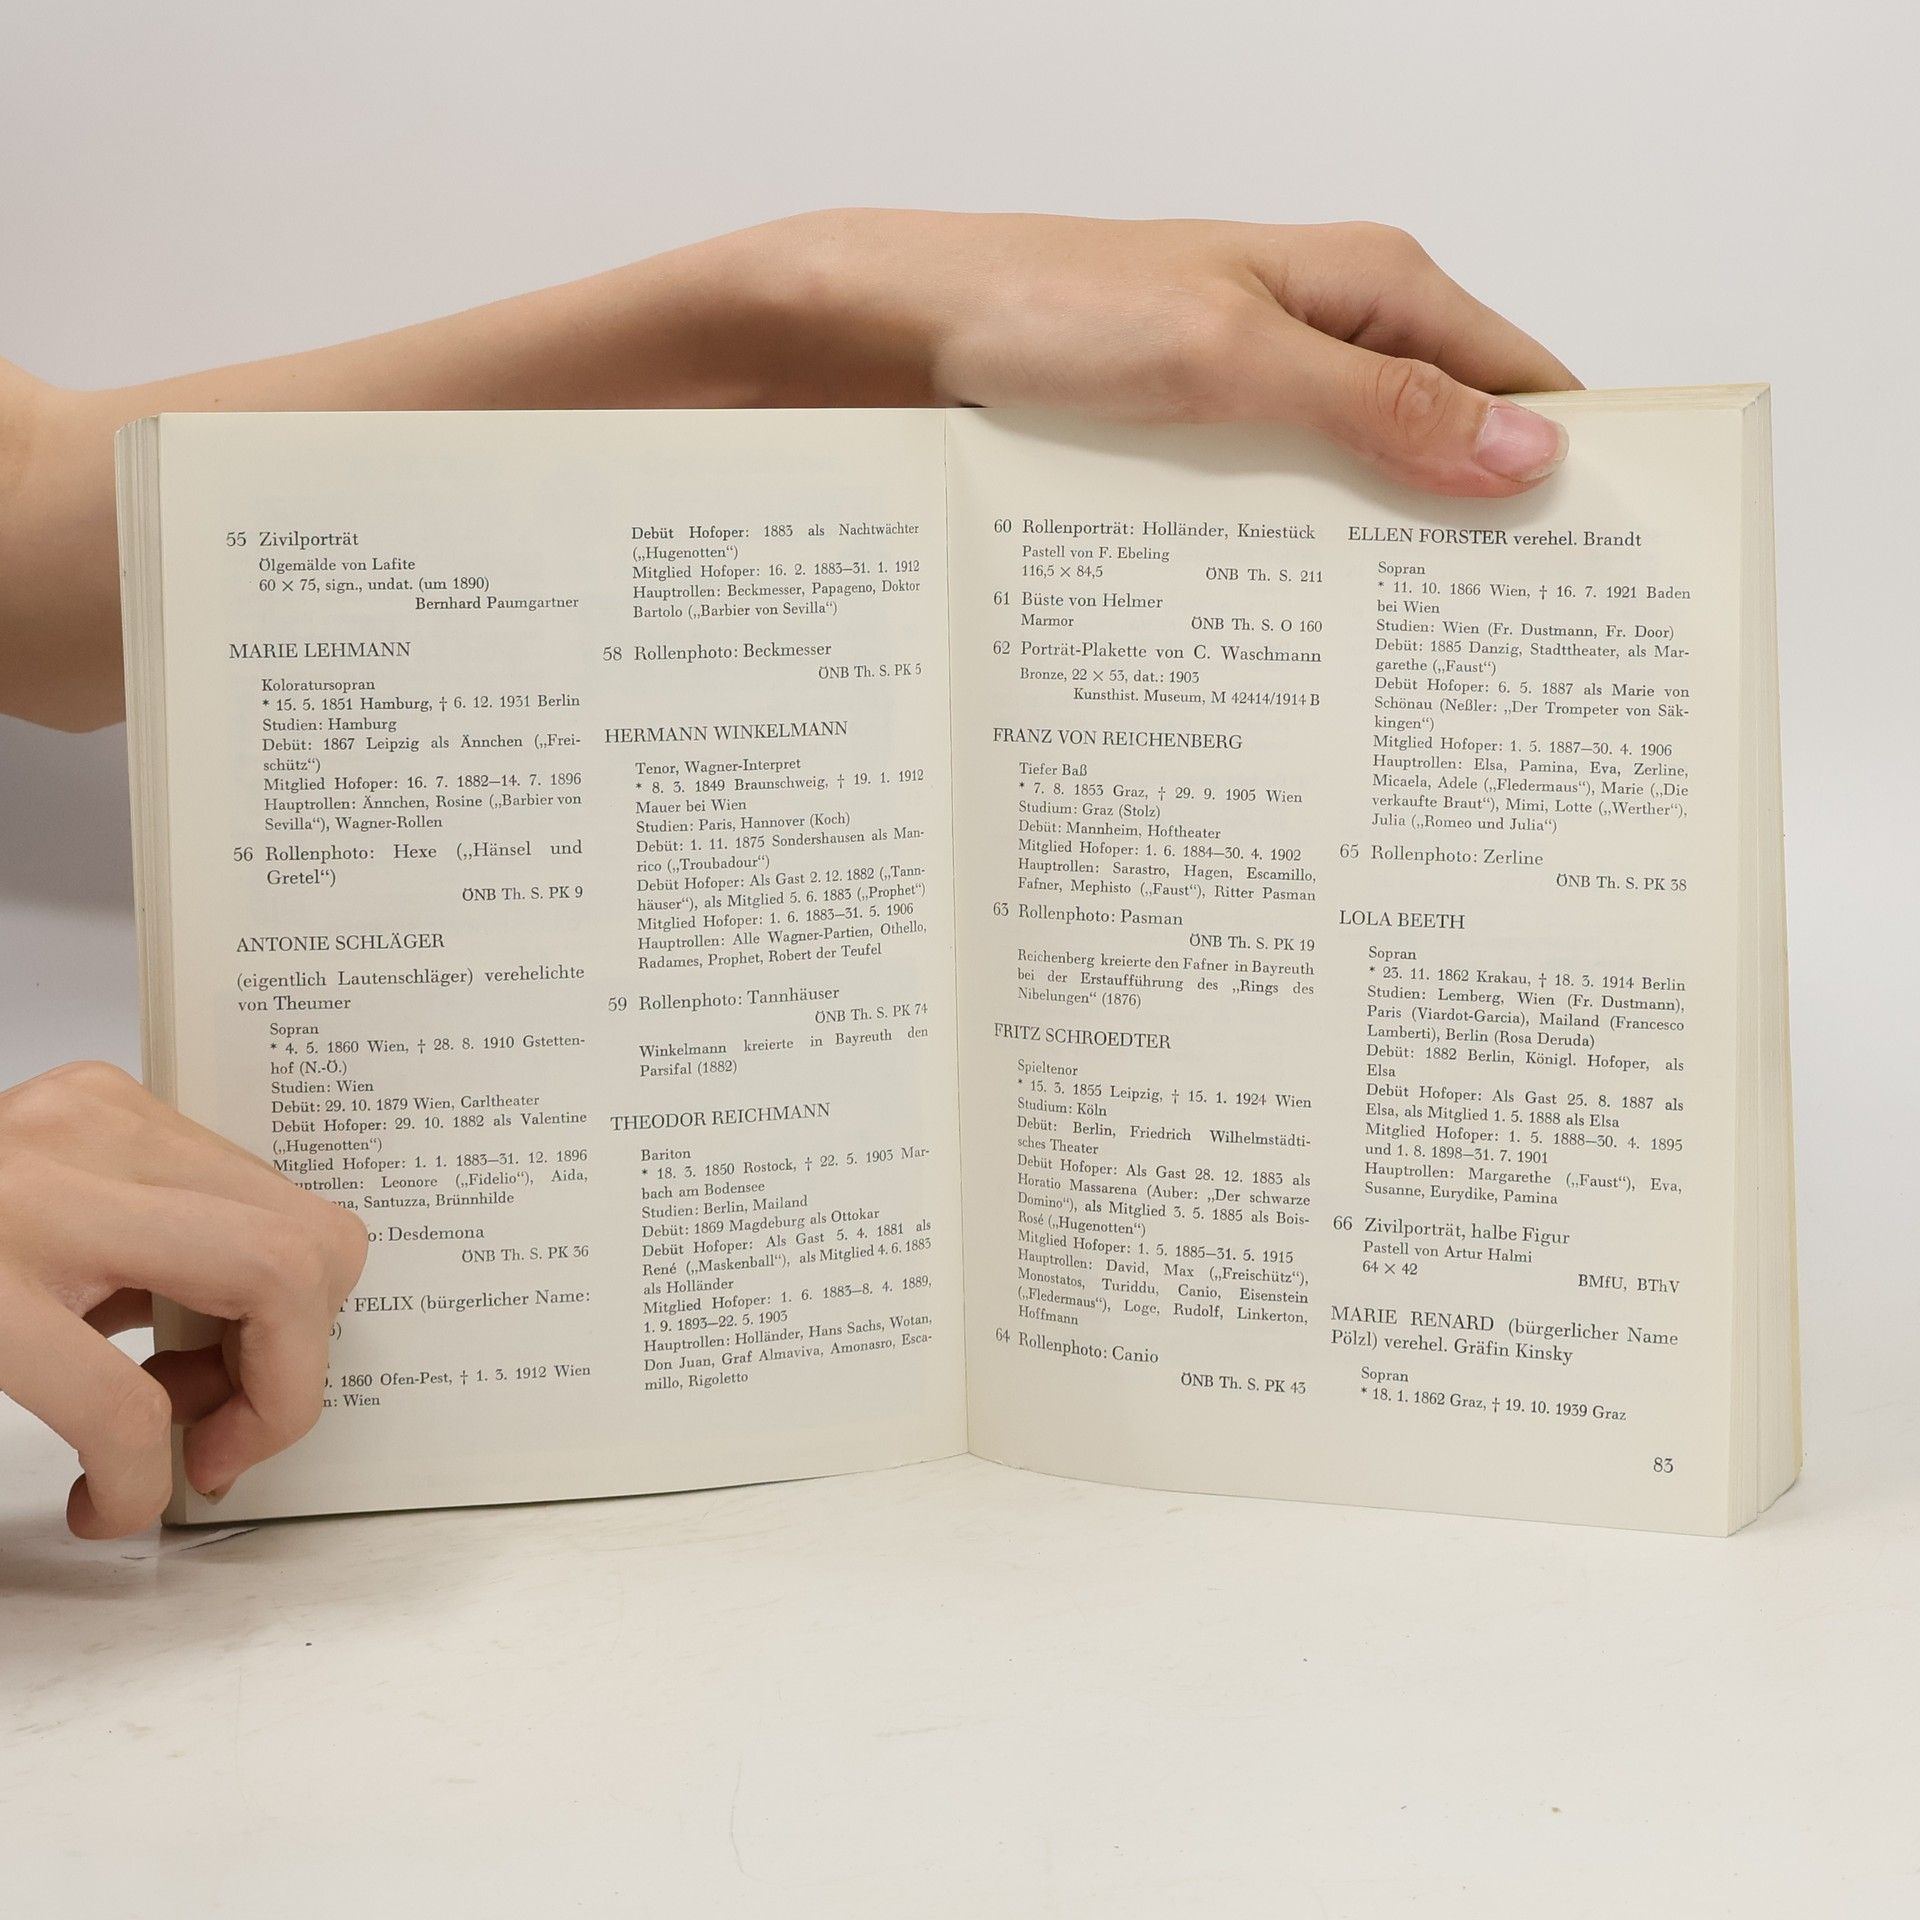 55 Zivilporträt
Ölgemälde von Lafite
60 × 75, sign., undat. (um 1890)
Bernhard Paumgartner
MARIE LEHMANN
Koloratursopran
* 15. 5. 1851 Hamburg, † 6. 12. 1931 Berlin
Studien: Hamburg
Debüt: 1867 Leipzig als Ännchen („Frei-
schütz“)
Mitglied Hofoper: 16. 7. 1882—14. 7. 1896
Hauptrollen: Ännchen, Rosine („Barbier von
Sevilla“), Wagner-Rollen
56 Rollenphoto: Hexe („Hänsel und
Gretel“)
ÖNB Th. S. PK 9
ANTONIE SCHLÄGER
(eigentlich Lautenschläger) verehelichte
von Theumer
Sopran
* 4. 5. 1860 Wien, † 28. 8. 1910 Gstetten-
hof (N.-Ö.)
Studien: Wien
Debüt: 29. 10. 1879 Wien, Carltheater
Debüt Hofoper: 29. 10. 1882 als Valentine
(„Hugenotten“)
Mitglied Hofoper: 1. 1. 1883—31. 12. 1896
Leonore („Fidelio“), Aida,
Santuzza, Brünnhilde
Desdemona
ÖNB Th. S. PK 36
FELIX (bürgerlicher Name:
1860 Ofen-Pest, † 1. 3. 1912 Wien
Wien
Debüt Hofoper: 1883 als Nachtwächter
(„Hugenotten“)
Mitglied Hofoper: 16. 2. 1883—31. 1. 1912
Hauptrollen: Beckmesser, Papageno, Doktor
Bartolo („Barbier von Sevilla“)
58 Rollenphoto: Beckmesser
ÖNB Th. S. PK 5
HERMANN WINKELMANN
Tenor, Wagner-Interpret
* 8. 3. 1849 Braunschweig, † 19. 1. 1912
Mauer bei Wien
Studien: Paris, Hannover (Koch)
Debüt: 1. 11. 1875 Sondershausen als Man-
rico („Troubadour“)
Debüt Hofoper: Als Gast 2. 12. 1882 („Tann-
häuser“), als Mitglied 5. 6. 1883 („Prophet“)
Mitglied Hofoper: 1. 6. 1883—31. 5. 1906
Hauptrollen: Alle Wagner-Partien, Othello,
Radames, Prophet, Robert der Teufel
59 Rollenphoto: Tannhäuser
ÖNB Th. S. PK 74
Winkelmann kreierte in Bayreuth den
Parsifal (1882)
THEODOR REICHMANN
Bariton
* 18. 3. 1850 Rostock, † 22. 5. 1903 Mar-
bach am Bodensee
Studien: Berlin, Mailand
Debüt: 1869 Magdeburg als Ottokar
Debüt Hofoper: Als Gast 5. 4. 1881 als
René („Maskenball“), als Mitglied 4. 6. 1883
als Holländer
Mitglied Hofoper: 1. 6. 1883—8. 4. 1889,
1. 9. 1893—22. 5. 1903
Hauptrollen: Holländer, Hans Sachs, Wotan,
Don Juan, Graf Almaviva, Amonasro, Esca-
millo, Rigoletto
60 Rollenporträt: Holländer, Kniestück
Pastell von F. Ebeling
116,5 × 84,5 ÖNB Th. S. 211
61 Büste von Helmer
Marmor ÖNB Th. S. O 160
62 Porträt-Plakette von C. Waschmann
Bronze, 22 × 53, dat.: 1903
Kunsthist. Museum, M 42414/1914 B
FRANZ VON REICHENBERG
Tiefer Baß
* 7. 8. 1853 Graz, † 29. 9. 1905 Wien
Studium: Graz (Stolz)
Debüt: Mannheim, Hoftheater
Mitglied Hofoper: 1. 6. 1884—30. 4. 1902
Hauptrollen: Sarastro, Hagen, Escamillo,
Fafner, Mephisto („Faust“), Ritter Pasman
63 Rollenphoto: Pasman
ÖNB Th. S. PK 19
Reichenberg kreierte den Fafner in Bayreuth
bei der Erstaufführung des „Rings des
Nibelungen“ (1876)
FRITZ SCHROEDTER
Spieltenor
* 15. 3. 1855 Leipzig, † 15. 1. 1924 Wien
Studium: Köln
Debüt: Berlin, Friedrich Wilhelmstädti-
sches Theater
Debüt Hofoper: Als Gast 28. 12. 1883 als
Horatio Massarena (Auber: „Der schwarze
Domino“), als Mitglied 3. 5. 1885 als Bois-
Rosé („Hugenotten“)
Mitglied Hofoper: 1. 5. 1885—31. 5. 1915
Hauptrollen: David, Max („Freischütz“),
Monostatos, Turiddu, Canio, Eisenstein
(„Fledermaus“), Loge, Rudolf, Linkerton,
Hoffmann
64 Rollenphoto: Canio
ÖNB Th. S. PK 43
ELLEN FORSTER verehel. Brandt
Sopran
* 11. 10. 1866 Wien, † 16. 7. 1921 Baden
bei Wien
Studien: Wien (Fr. Dustmann, Fr. Door)
Debüt: 1885 Danzig, Stadttheater, als Mar-
garethe („Faust“)
Debüt Hofoper: 6. 5. 1887 als Marie von
Schönau (Neßler: „Der Trompeter von Säk-
kingen“)
Mitglied Hofoper: 1. 5. 1887—30. 4. 1906
Hauptrollen: Elsa, Pamina, Eva, Zerline,
Micaela, Adele („Fledermaus“), Marie („Die
verkaufte Braut“), Mimi, Lotte („Werther“),
Julia („Romeo und Julia“)
65 Rollenphoto: Zerline
ÖNB Th. S. PK 38
LOLA BEETH
Sopran
* 23. 11. 1862 Krakau, † 18. 3. 1914 Berlin
Studien: Lemberg, Wien (Fr. Dustmann),
Paris (Viardot-Garcia), Mailand (Francesco
Lamberti), Berlin (Rosa Deruda)
Debüt: 1882 Berlin, Königl. Hofoper, als
Elsa
Debüt Hofoper: Als Gast 25. 8. 1887 als
Elsa, als Mitglied 1. 5. 1888 als Elsa
Mitglied Hofoper: 1. 5. 1888—30. 4. 1895
und 1. 8. 1898—31. 7. 1901
Hauptrollen: Margarethe („Faust“), Eva,
Susanne, Eurydike, Pamina
66 Zivilporträt, halbe Figur
Pastell von Artur Halmi
64 × 42 BMfU, BThV
MARIE RENARD (bürgerlicher Name
Pölzl) verehel. Gräfin Kinsky
Sopran
* 18. 1. 1862 Graz, † 19. 10. 1939 Graz
83